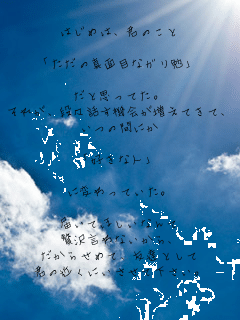 はじめは、君のこと
「ただの真面目ながり勉」
だと思ってた。
すれが、段々話す機会が増えてきて、
いつの間にか
「好きな人」
に変わっていた。
届いてほしいなんて
贅沢言わないから、
だからせめて、友達として
君の近くにいさせて下さい。